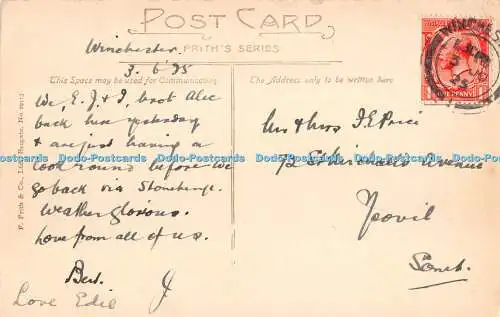 POST CARD
FRITH'S SERIES
Winchester.
3.6.25
This Space may be used for Communication
The Address only to be written here
ONE PENNY
WINCHES
We, E. J & I, boot Alec
back here yesterday
& are just having a
look round before we
go back via Stonehenge.
Weather glorious.
Love from all of us.
Bert. J
Love Edie
Mrs & Miss J. E. Price
72 St Michaels Avenue
Yeovil
Som.
F. Frith & Co., Ltd., Reigate. No.
Dodo-Postcards Dodo-Postcards Dodo-Postcards Dodo-Postcards Dodo-Postcards